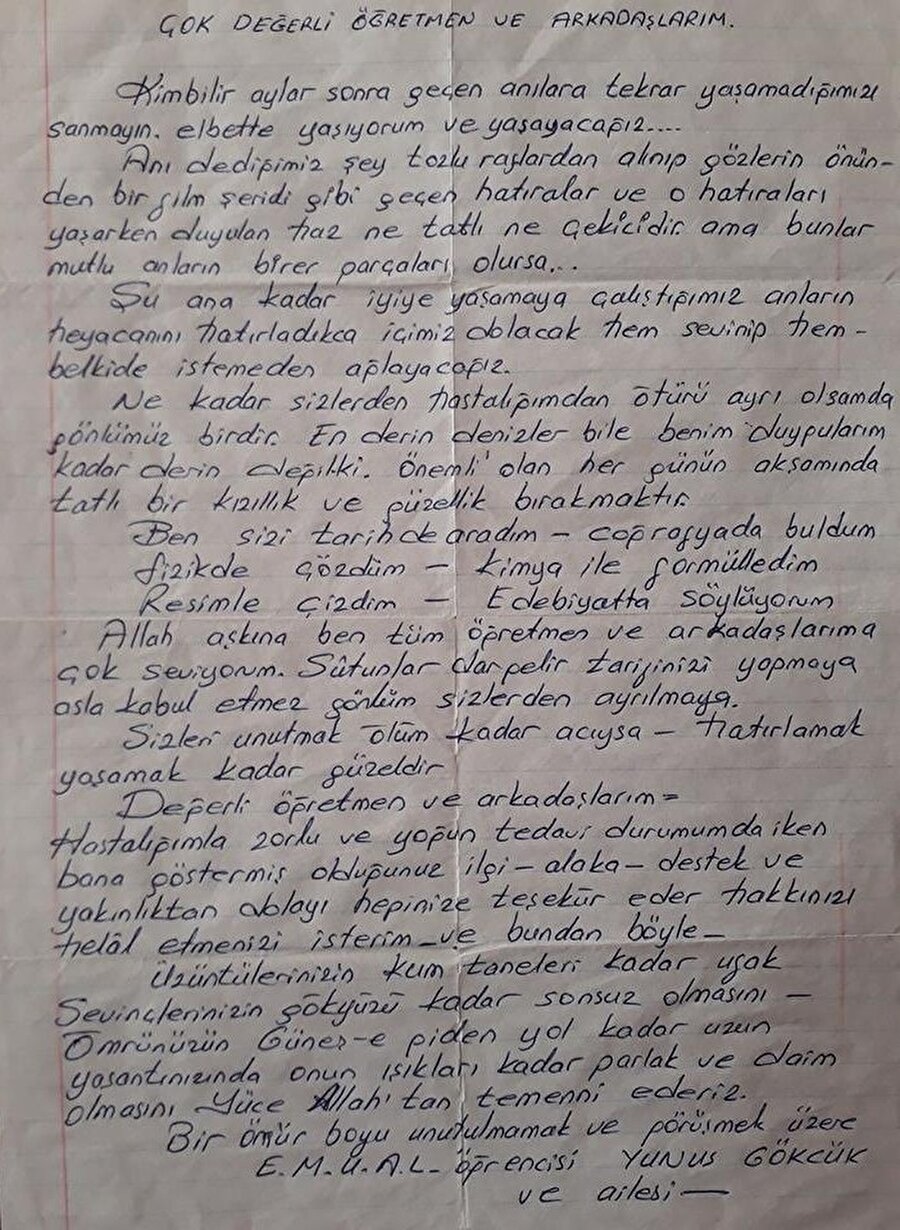 ÇOK DEĞERLİ ÖĞRETMEN VE ARKADAŞLARIM.
Kimbilir aylar sonra geçen anılara tekrar yaşamadığımızı
sanmayın. elbette yaşıyorum ve yaşayacağız....
Anı dediğimiz şey tozlu raflardan alınıp gözlerin önün-
den bir film şeridi gibi geçen hatıralar ve o hatıraları
yaşarken duyulan haz ne tatlı ne çekicidir ama bunlar
mutlu anların birer parçaları olursa...
Şu ana kadar iyiye yaşamaya çalıştığımız anların
heyacanını hatırladıkca içimiz dolacak hem sevinip hem-
belkide istemeden ağlayacağız.
Ne kadar sizlerden hastalığımdan ötürü ayrı olsamda
gönlümüz birdir. En derin denizler bile benim duygularım
kadar derin değilki. Önemli olan her günün akşamında
tatlı bir kızıllık ve güzellik bırakmaktır.
Ben sizi tarihde aradım - coğrafyada buldum
fizikde çözdüm - kimya ile formülledim
Resimle çizdim - Edebiyatta söylüyorum
Allah aşkına ben tüm öğretmen ve arkadaşlarıma
çok seviyorum. Sütunlar dar gelir tarifinizi yapmaya
asla kabul etmez gönlüm sizlerden ayrılmaya.
Sizleri unutmak ölüm kadar acıysa - hatırlamak
yaşamak kadar güzeldir
Değerli öğretmen ve arkadaşlarım=
Hastalığımla zorlu ve yoğun tedavi durumumda iken
bana göstermiş olduğunuz ilgi-alaka-destek ve
yakınlıktan dolayı hepinize teşekür eder hakkınızı
helâl etmenizi isterim-ve bundan böyle-
Üzüntülerinizin kum taneleri kadar ufak
Sevinçlerinizin gökyüzü kadar sonsuz olmasını -
Ömrünüzün Güneş-e giden yol kadar uzun
yaşantınızında onun ışıkları kadar parlak ve daim
olmasını Yüce Allah'tan temenni ederiz.
Bir ömür boyu unutulmamak ve görüşmek üzere
E.M.U.A.L- öğrencisi YUNUS GÖKCÜK
ve ailesi-